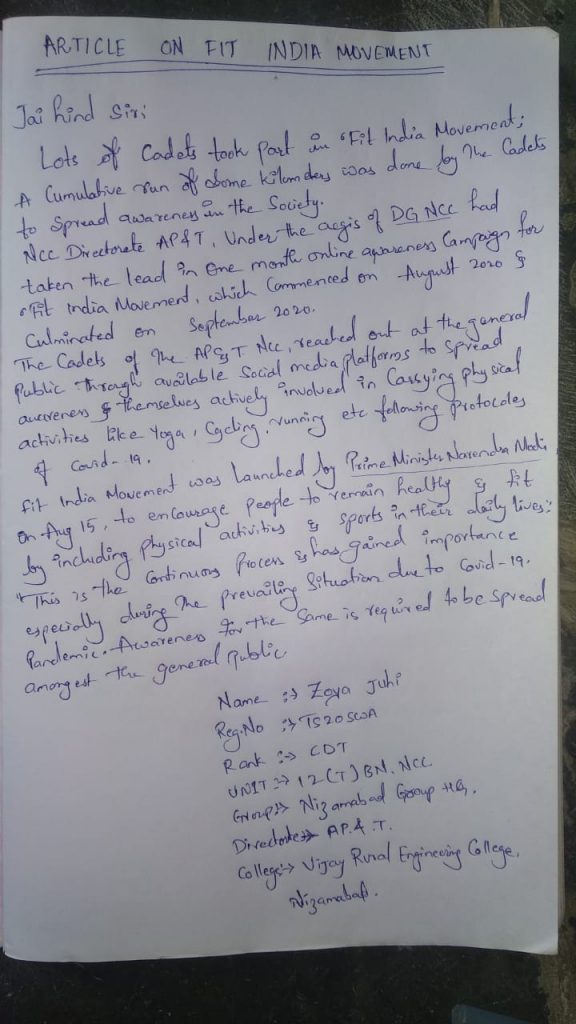 ARTICLE ON FIT INDIA MOVEMENT
Jai hind Sir;
Lots of Cadets took part in "Fit India Movement;
A Cumulative run of some kilometers was done by the Cadets
to Spread awareness in the Society.
NCC Directorate AP&T, Under the aegis of DG NCC had
taken the lead in One month online awareness Campaign for
"Fit India Movement, which Commenced on August 2020 &
Culminated on September 2020.
The Cadets of The AP&T Ncc, reached out at the general
Public Through available Social media platforms to Spread
awareness & themselves actively involved in Carrying physical
activities like Yoga, Cycling, running etc following Protocoles
of Covid-19.
Fit India Movement was launched by Prime Minister Narendra Modi
on Aug 15, to encourage people to remain healthy & fit
by including physical activities & sports in their daily lives:
"This is the Continuous Process & has gained importance
especially during The prevailing Situation due to Covid-19.
Pandemic. Awareness for the Same is required to be Spread
amongest the general public.
Name :-> Zoya Juhi
Reg.No :-> TS20SWA
Rank :-> CDT
UNIT :-> 12(T) BN. NCC
Group:-> Nizamabad Group HQ.
Directorate:-> AP.&.T.
College:-> Vijay Rural Engineering College,
Nizamabad.